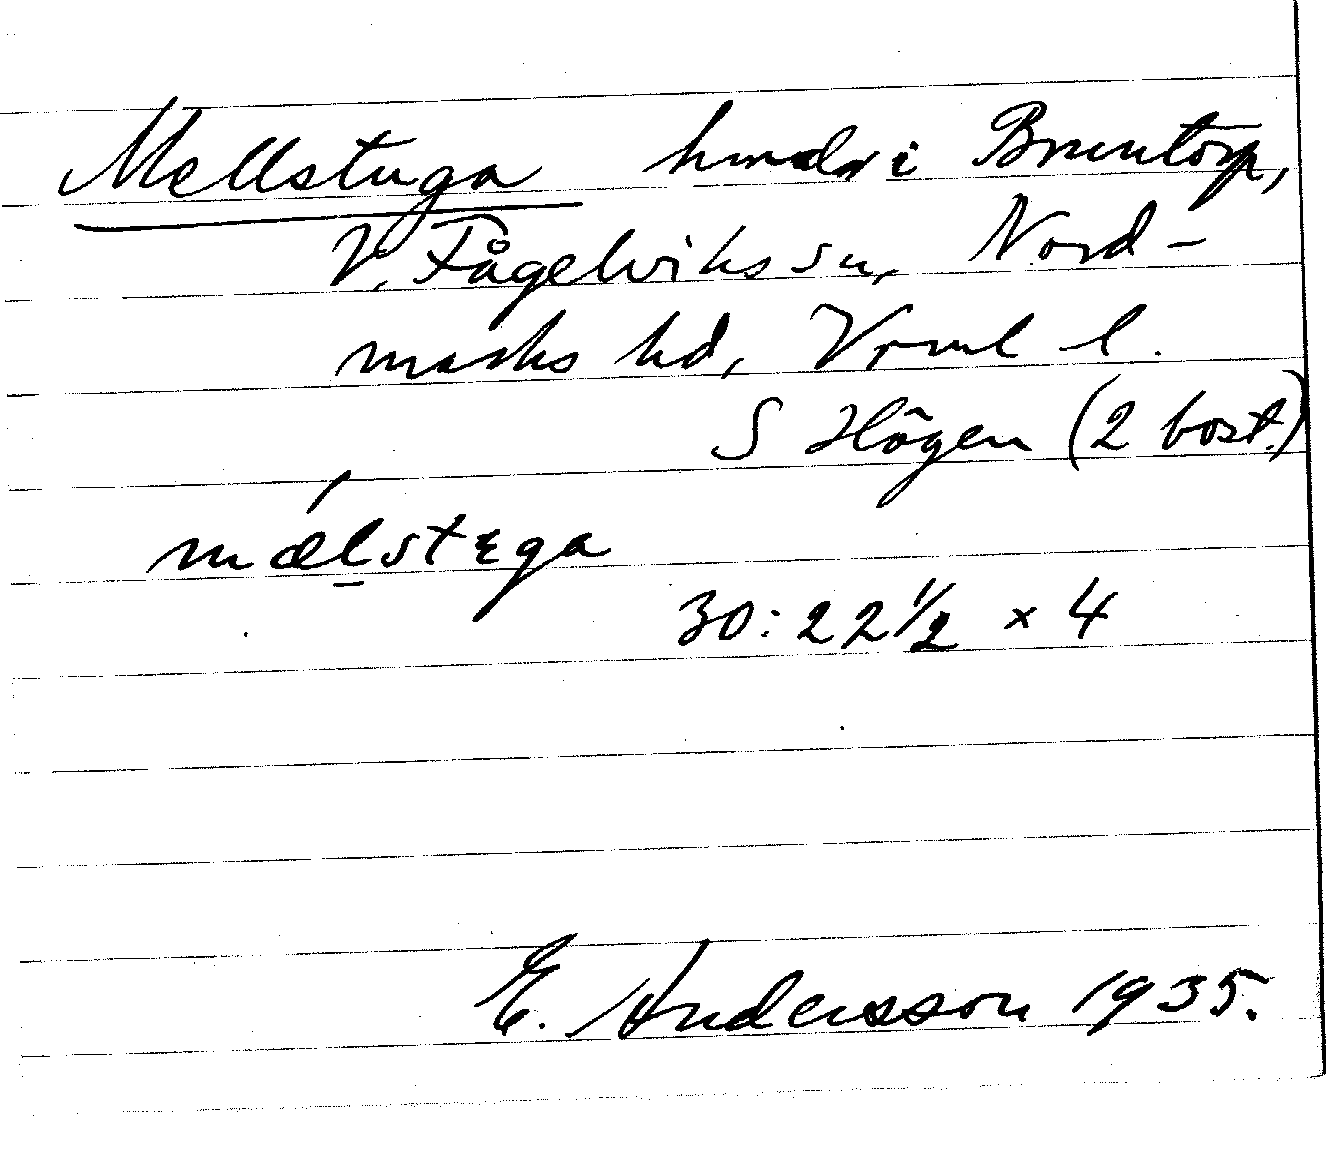 Mellstuga hmd i Bruntorp,
V. Fågelviks sn, Nord-
marks hd, Vrml l.
S Högen (2 bost.)
mǽl̲stɛga
30:22½ × 4
E. Andersson 1935.